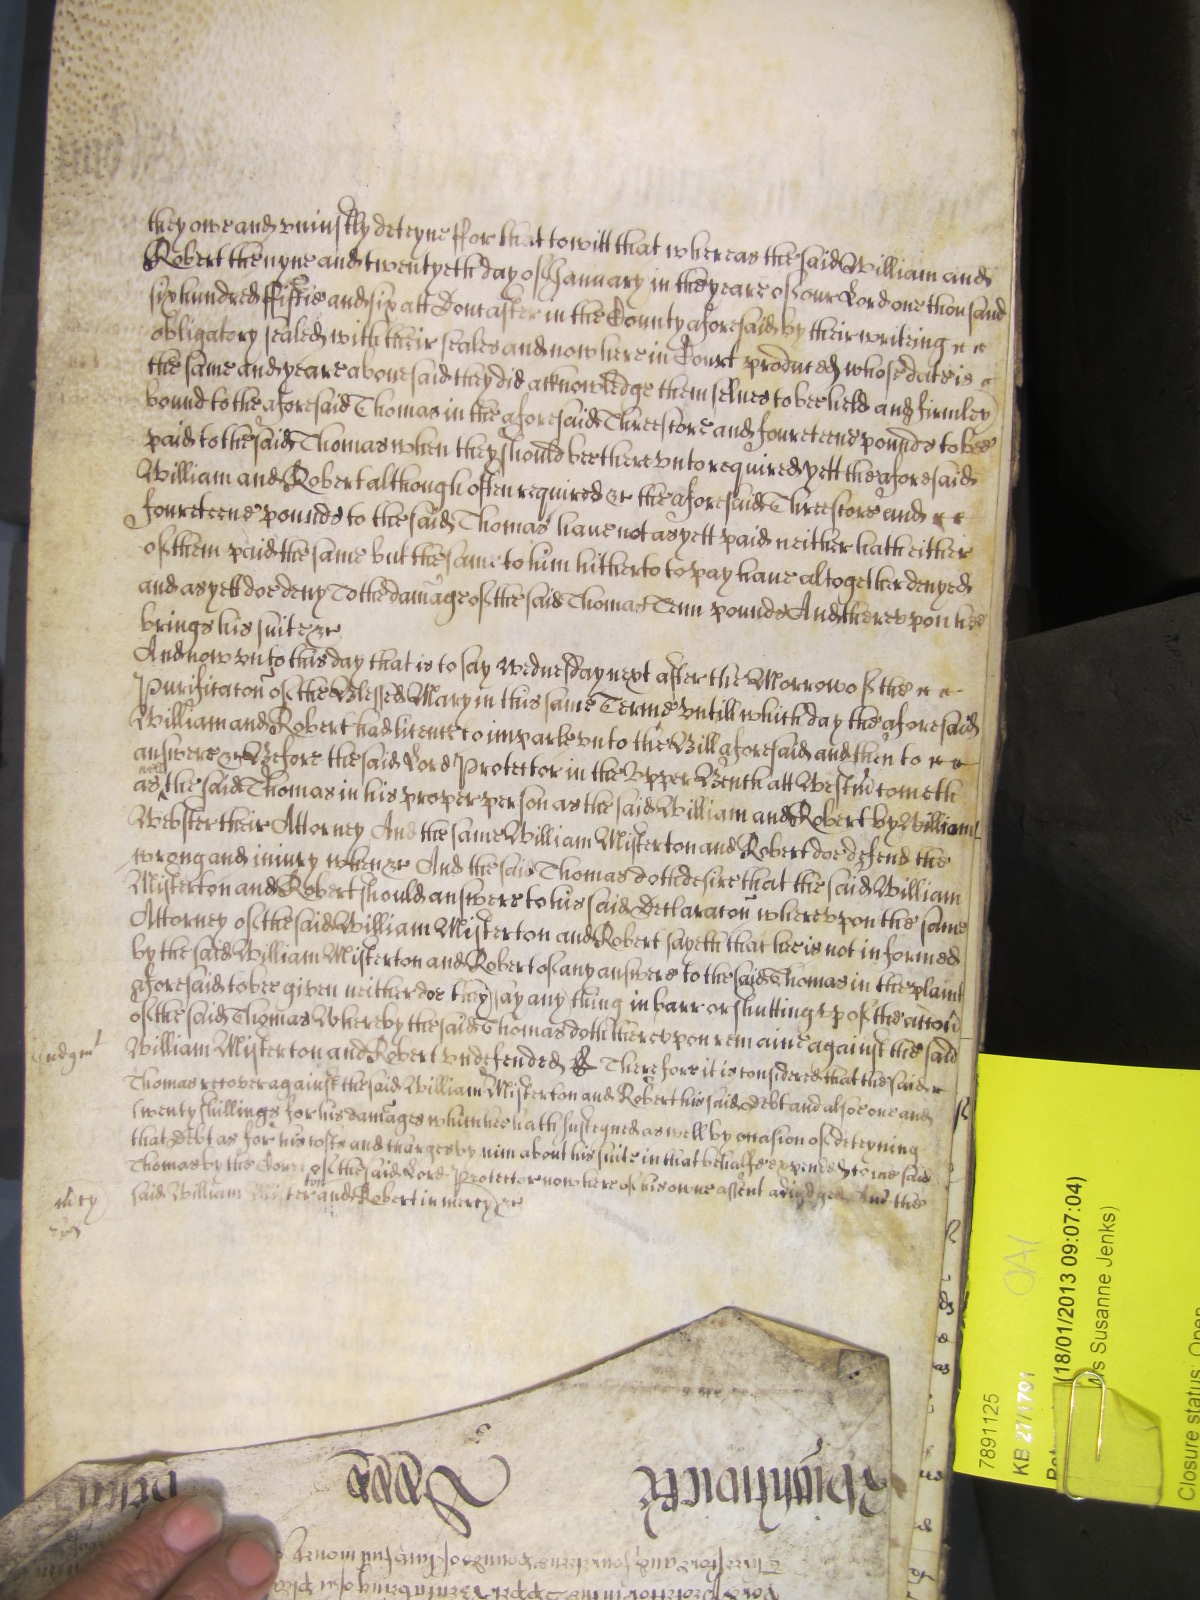 they owe and uniustly deteyne ffor that towitt that whereas the said William and
Robert the nyne and twentyeth day of January in the yeare of our Lord one thousand
six hundred fiftie and six att Doncaster in the County aforesaid by their writeing
obligatory sealed with their seales and now here in Court produced whose date is
the same and yeare abovesaid they did acknowledge themselves to bee held and firmley
bound to the aforesaid Thomas in the aforesaid Threescore and foureteene pounds to bee
paid to the said Thomas when they should bee thereunto required yett the aforesaid
William and Robert although often required &c the aforesaid Threescore and
foureteene pounds to the said Thomas have not as yett paid neither hath either
of them paid the same but the same to him hitherto to pay have altogether denyed
and as yett doe deny To the damage of the said Thomas Tenn pounds And thereupon hee
brings his suite &c
And now unto this day that is to say Wednesday next after the Morrow of the
Purificacon of the Blessed Mary in this same Terme untill which day the aforesaid
William and Robert had licence to imparle unto the Bill aforesaid and then to
answere &c Before the said Lord Protector in the Upper Bench att Westm cometh
as well the said Thomas in his proper person as the said William and Robert by William
Webster their Attorney And the same William Misterton and Robert doe defend the
wrong and iniury when &c And the said Thomas doth desire that the said William
Misterton and Robert should answere to his said Declaracon whereupon the same
Attorney of the said William Misterton and Robert sayeth that hee is not informed
by the said William Misterton and Robert of any answere to the said Thomas in the plaint
aforesaid to bee given neither doe they say any thing in barr or shutting up of the accon
of the said Thomas Whereby the said Thomas doth thereupon remaine against the said
Judgmt
William Misterton and Robert undefended &c Therefore it is considered that the said
Thomas recover against the said William Misterton and Robert his said debt and alsoe one and
twenty shillings for his damages which hee hath susteyned as well by occasion of deteyning
that debt as for his costs and charges by him about his suite in that behalfe expended to the said
Thomas by the Court of the said Lord Protector now here of his owne assent adiudged And the
mercy
said William Misterton and Robert in mercy &c
7891125
KB 27/1791
(18/01/2013 09:07:04)
Ms Susanne Jenks)
Closure status: Open